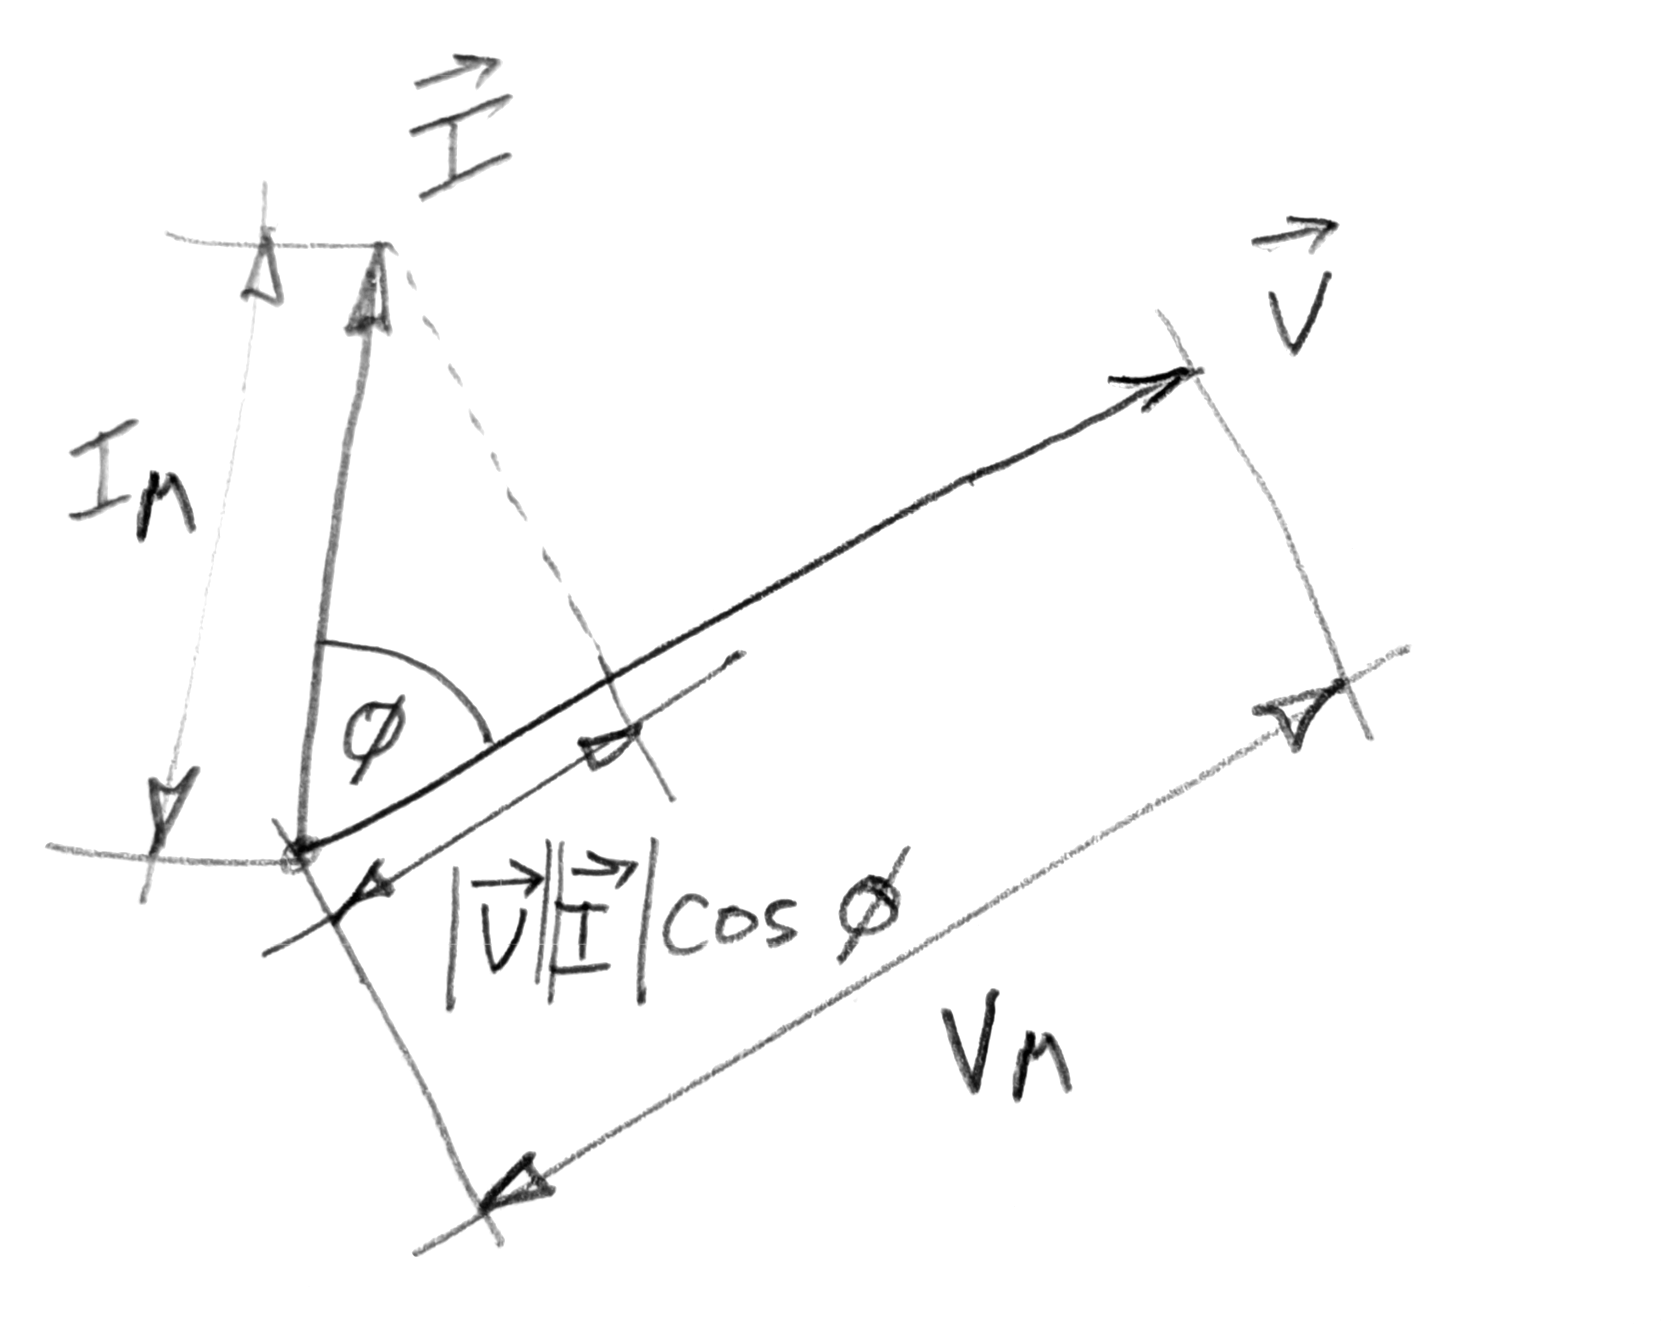 I⃗
V⃗
I_M
ϕ
|V⃗||I⃗| cos ϕ
V_M